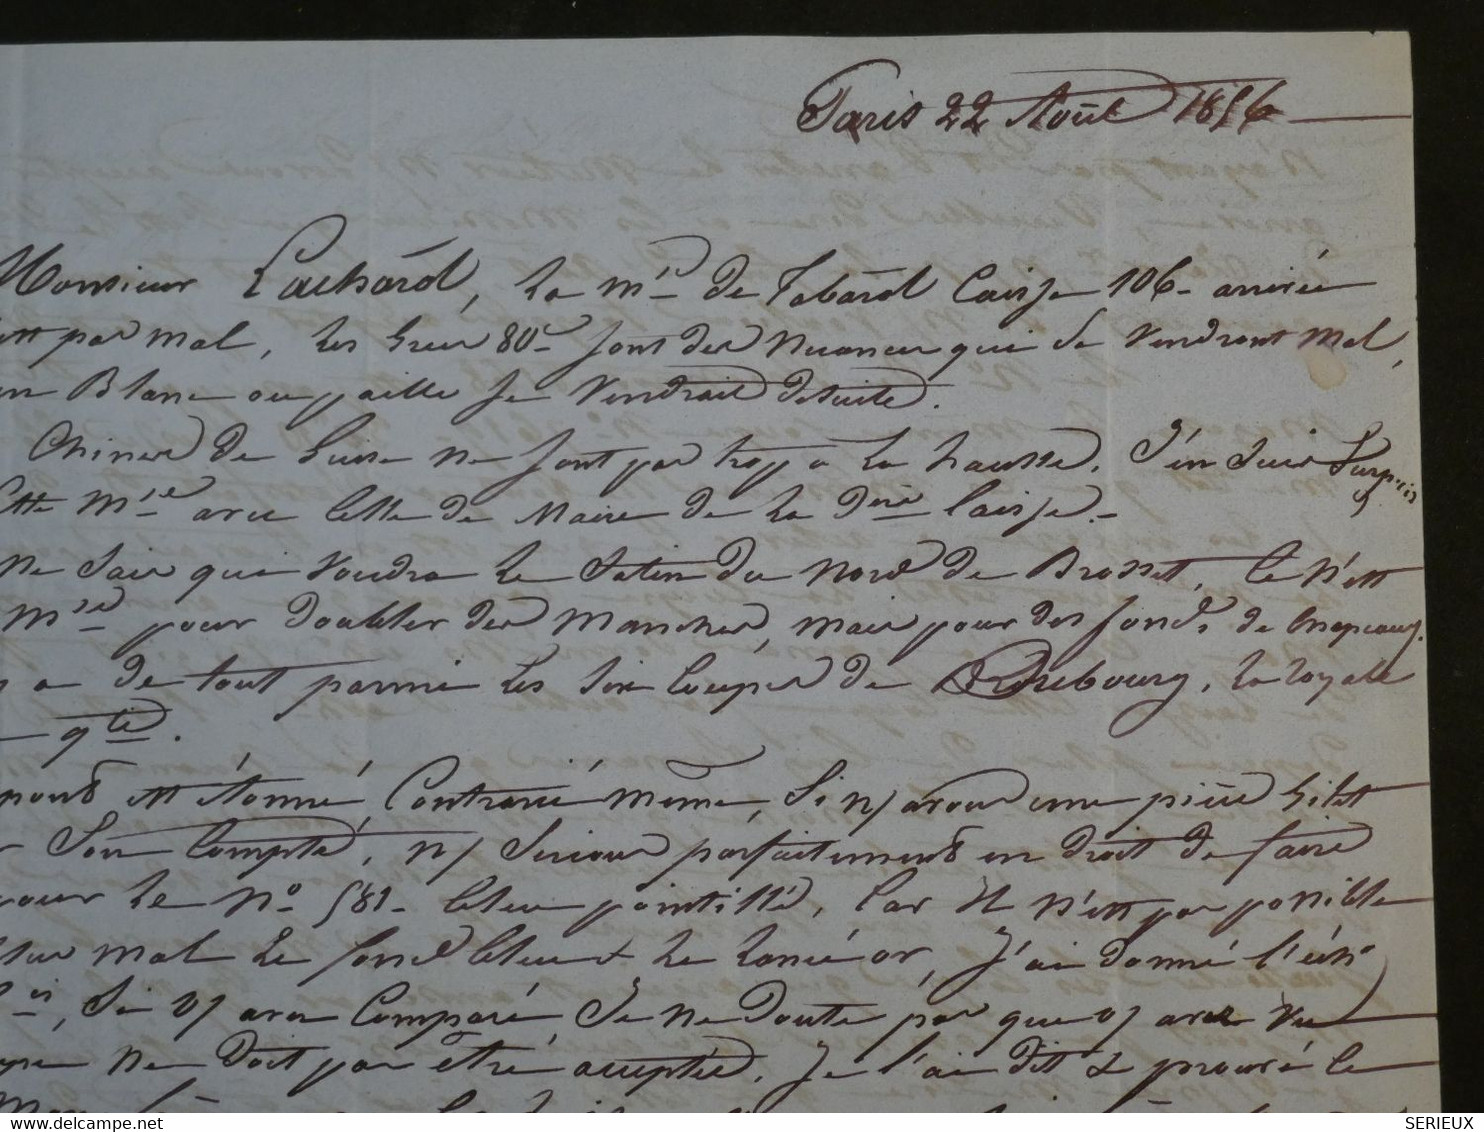 Paris 22 Août 1856
Monsieur Lachard, La m.se de Tabard Caisse 106 - arrivée
est pas mal, les Gris 80 - sont des Nuances qui se Vendront mal,
en Blanc ou paille se Vendrait desuite.
Chines de Suisse ne sont pas trop à la hausse. J'en suis Surpris
Cette m.se avec celle de Maire de La D.re Caisse. -
ne sais qui voudra le Satin du Nord de Brosset, Ce n'est
M.se pour doubler des Manches, mais pour des fonds de Chapeaux.
y a de tout parmi les Six Coupes de Dubourg, La royale
- q.té.
est étonné, Contrarié même, Si n/ avons une pièce Gilet
Son Compte, n/ Serions parfaitement en droit de faire
pour le N.o 581 - bleu pointillé, Car Il n'est pas possible
mal le fond bleu & le lancé or, J'ai donné l'éch.
Si v/ avez Comparé, Je ne Doute pas que v/ avez Vu
ne Doit pas être acceptée. Je l'ai dit & prouvé le
SERIEUX